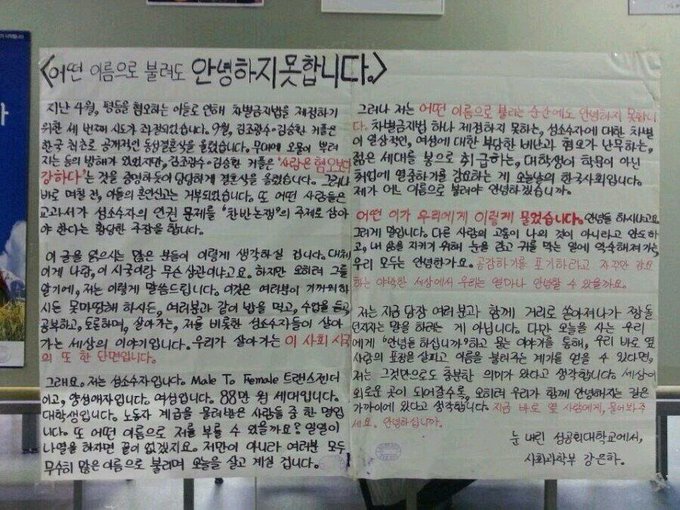 <어떤 이름으로 불려도 안녕하지못합니다.>
지난 4월, 평등을 혐오하는 이들로 인해 차별금지법을 제정하기
위한 세 번째 시도가 좌절되었습니다. 9월, 김조광수·김승환 커플은
한국 최초로 공개적인 동성결혼식을 올렸습니다. 무대에 오물이 뿌려
지는 등의 방해가 있었지만, 김조광수·김승환 커플은 "사랑은 혐오보다
강하다"는 것을 증명하듯이 당당하게 결혼식을 올렸습니다. 그러나
바로 며칠 전, 이들의 혼인신고는 거부되었습니다. 또 어떤 사람들은
교과서가 성소수자의 인권 문제를 "찬반논쟁"의 주제로 삼아
야 한다는 황당한 주장을 합니다.
이 글을 읽으시는 많은 분들이 이렇게 생각하실 겁니다. 대체
이게 나랑, 이 시국이랑 무슨 상관이냐고요. 하지만 오히려 그를
알기에, 저는 이렇게 말씀드립니다. 이것은 여러분이 가까워 하
시든 못마땅해 하시든, 여러분과 같이 밥을 먹고, 수업을 듣고,
공부하고, 토론하며, 살아가는, 저를 비롯한 성소수자들이 살아
가는 세상의 이야기입니다. 우리가 살아가는 이 사회 시국
의 또 한 단면입니다.
그래요. 저는 성소수자입니다. Male To Female 트랜스젠더
이고, 양성애자입니다. 여성입니다. 88만 원 세대입니다.
대학생입니다. 노동자 계급을 물려받은 사람들 중 한 명입
니다. 또 어떤 이름으로 저를 부를 수 있을까요? 일일이
나열을 하자면 끝이 없겠지요. 저만이 아니라 여러분 모두
무수히 많은 이름으로 불리며 오늘을 살고 계실 겁니다.
그러나 저는 어떤 이름으로 불리는 순간에도 안녕하지 못합니
다. 차별금지법 하나 제정하지 못하는, 성소수자에 대한 차별
이 일상적인, 여성에 대한 부당한 비난과 혐오가 난무하는,
젊은 세대를 봉으로 취급하는, 대학생이 학문이 아닌
취업에 열중하기를 강요하는 게 오늘날의 한국사회입니다.
제가 어느 이름으로 불려야 안녕하겠습니까.
어떤 이가 우리에게 이렇게 물었습니다. 안녕들 하시냐고요.
그러게 말입니다. 다른 사람의 고통이 나의 것이 아니라고 안도하
고, 내 몸을 지키기 위해 눈을 감고 귀를 막는 일에 익숙해져가는,
우리 모두는 안녕한가요. 공감하기를 포기하라고 자꾸만 강요
하는 야박한 세상에서 우리는 얼마나 안녕할 수 있을까요.
저는 지금 당장 여러분과 함께 거리로 쏟아져나가 짱돌을
던지자는 말을 하려는 게 아닙니다. 다만 오늘을 사는 우리
에게 "안녕들 하십니까?"하고 묻는 이야기를 통해, 우리 바로 옆
사람의 표정을 살피고 이름을 불러주는 계기를 얻을 수 있다면,
저는 그것만으로도 충분한 의미가 있다고 생각합니다. 세상이
외로운 곳이 되어갈수록, 오히려 우리가 함께 안녕해지는 길은
가까이에 있다고 생각합니다. 지금 바로 옆 사람에게, 물어봐주
세요. 안녕하십니까.
눈 내린 성공회대학교에서,
사회과학부 강은하.